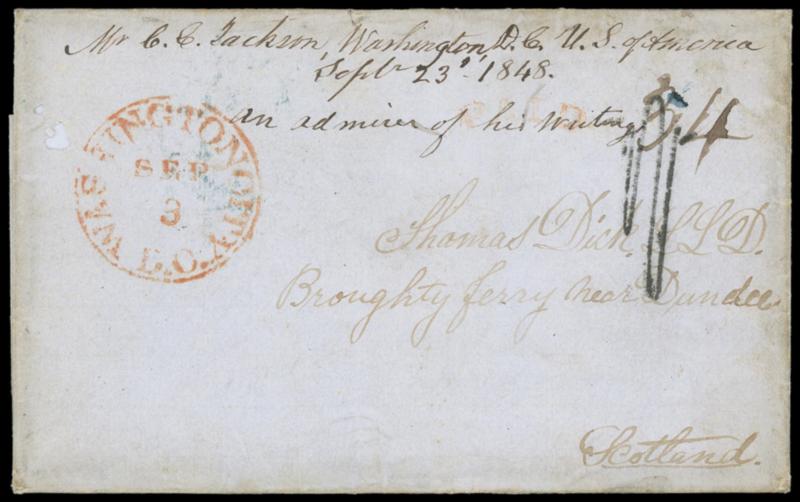 Mr C. C. Jackson, Washington, D. C. U. S. of America
Septr 23d, 1848.
an admirer of his Writings
PAID
34
WASHINGTON CITY
SEP
3
D.C.
Thomas Dick, L L D.
Broughty ferry near Dundee
Scotland.